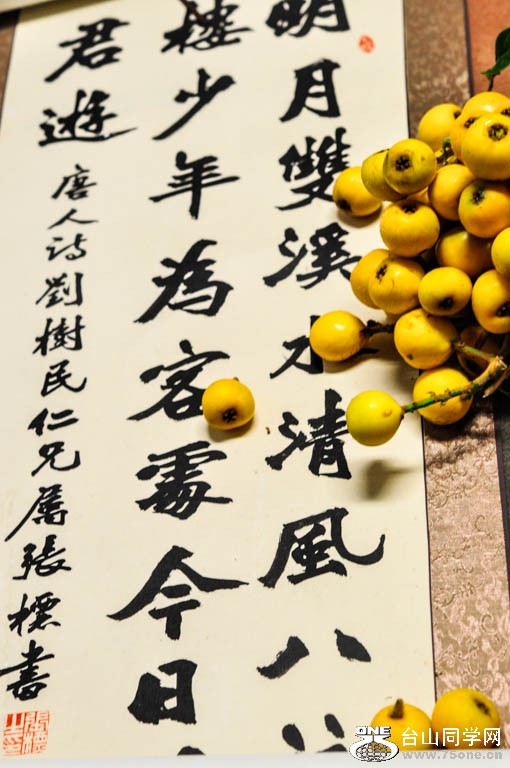 明月雙溪水清風八
樓少年為客處今日
君遊
唐人诗劉樹民仁兄属張標書
ONE
台山同学网
www.75one.cn